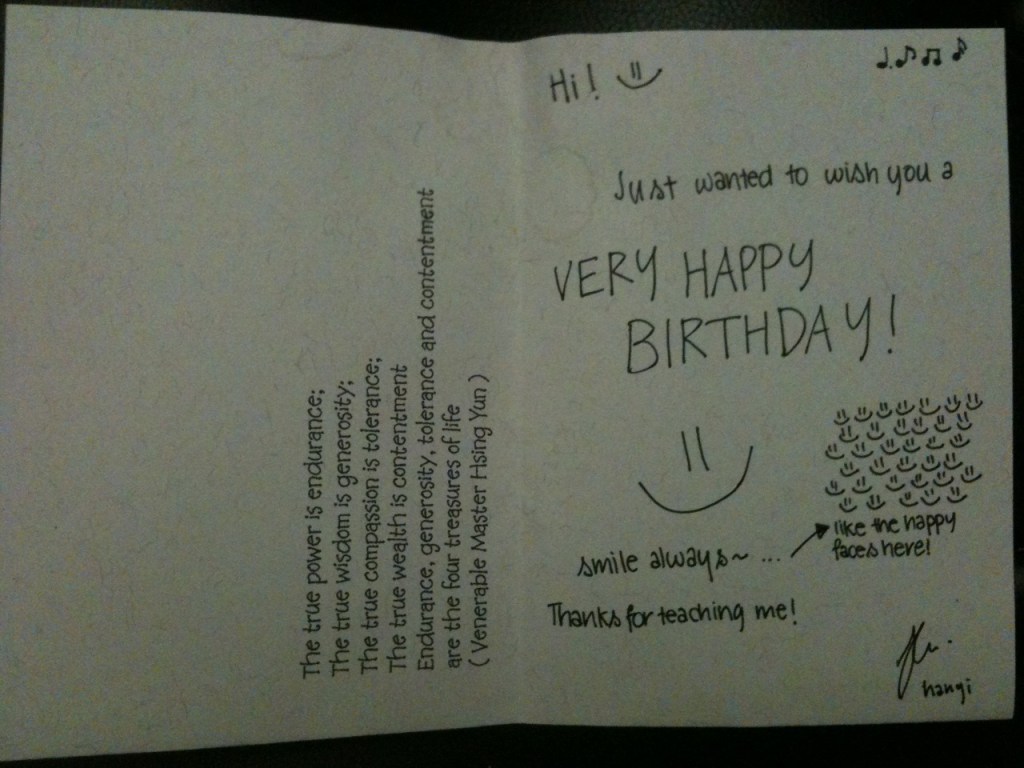 The true power is endurance;
The true wisdom is generosity;
The true compassion is tolerance;
The true wealth is contentment
Endurance, generosity, tolerance and contentment
are the four treasures of life
( Venerable Master Hsing Yun )
Hi!
Just wanted to wish you a
VERY HAPPY
BIRTHDAY!
smile always~ ...
like the happy
faces here!
Thanks for teaching me!
hanyi